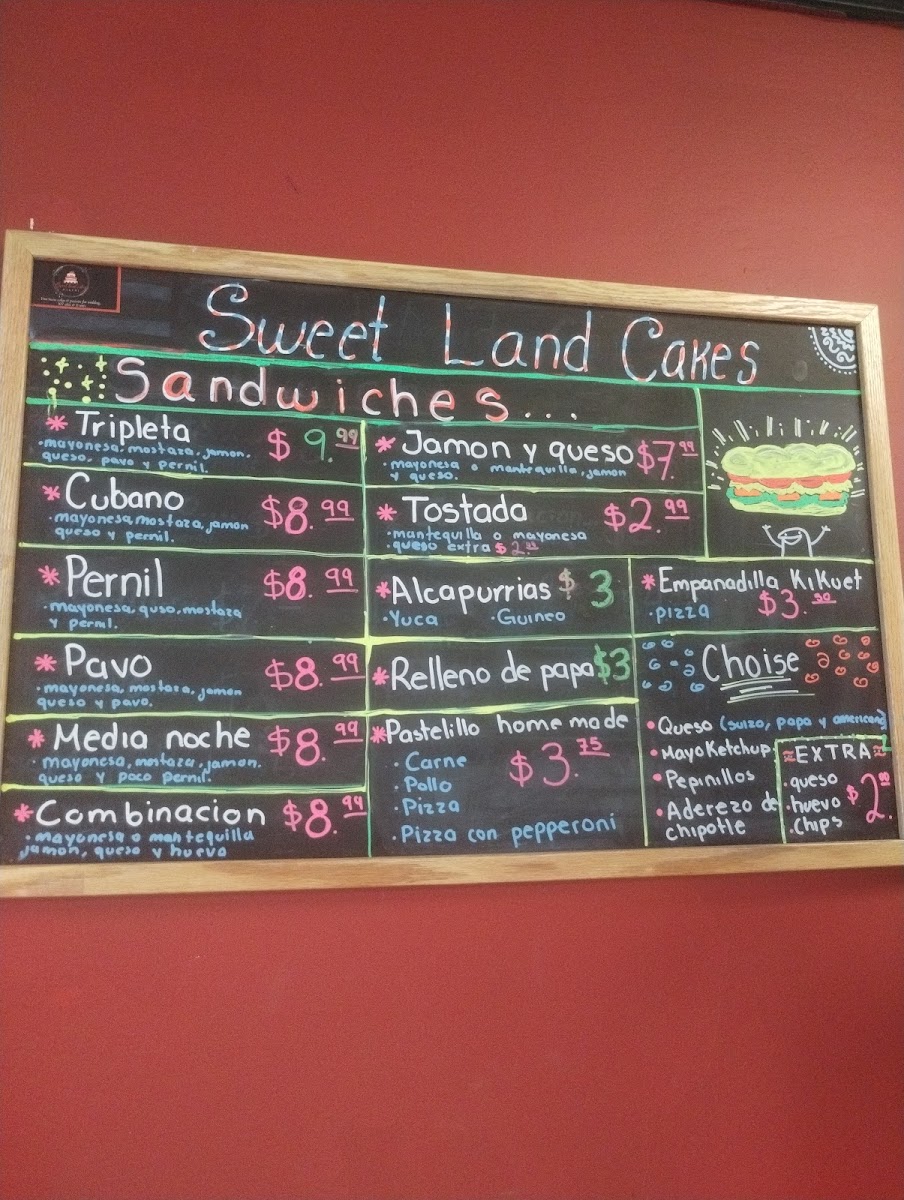 Sweet Land Cakes
Sandwiches...
* Tripleta $9.99
·mayonesa, mostaza, jamon,
queso, pavo y pernil.
* Cubano $8.99
·mayonesa, mostaza, jamon
queso y pernil.
* Pernil $8.99
·mayonesa, quso, mostaza
y pernil.
* Pavo $8.99
·mayonesa, mostaza, jamon
queso y pavo.
* Media noche $8.99
·mayonesa, mostaza, jamon.
queso y poco pernil.
* Combinacion $8.99
·mayonesa o mantequilla
jamon, queso y huevo
* Jamon y queso $7.99
·mayonesa o mantequilla, jamon
y queso.
* Tostada $2.99
·mantequilla o mayonesa
·queso extra $2.
* Alcapurrias $3
·Yuca ·Guineo
* Relleno de papa $3
* Pastelillo home made
$3.75
·Carne
·Pollo
·Pizza
·Pizza con pepperoni
* Empanadilla Kikuet
·pizza $3.50
Choise
·Queso (suizo, papa y americano)
·MayoKetchup
·Pepinillos
·Aderezo de
chipotle
EXTRA
·queso
·huevo
·chips
$2.